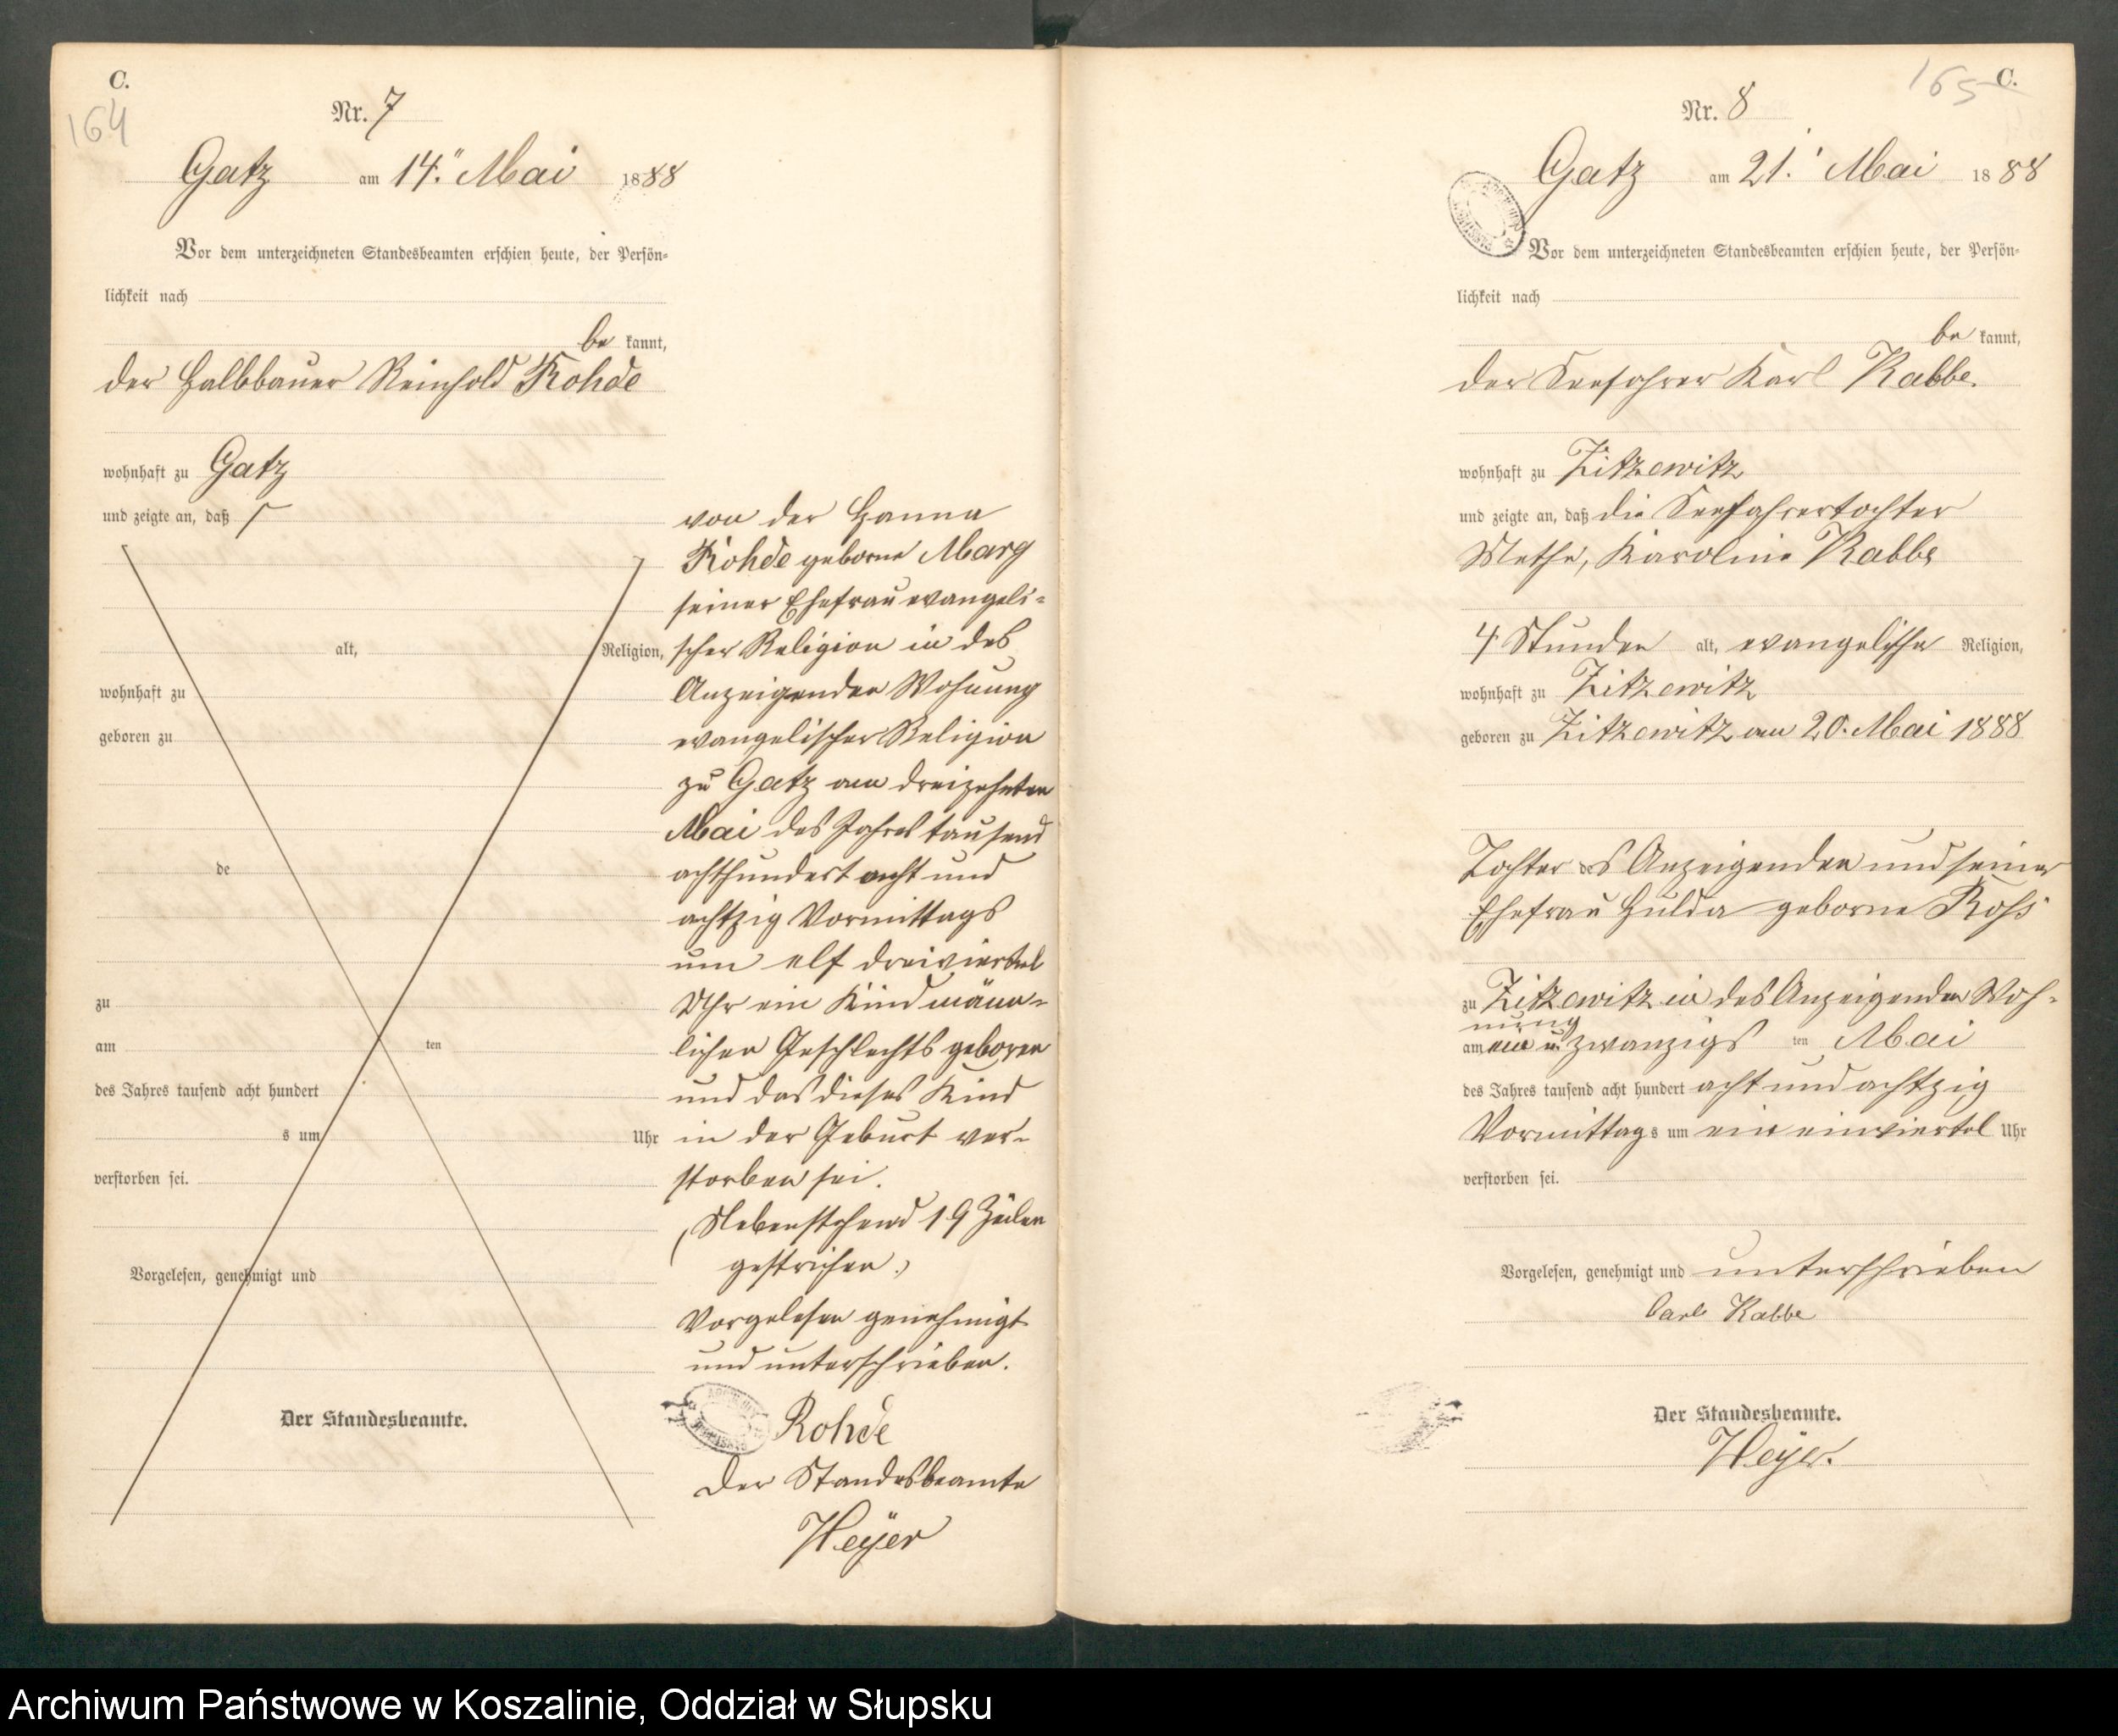 C.
164
Nr. 7
Gatz am 14. Mai 1888
Vor dem unterzeichneten Standesbeamten erschien heute, der Persön-
lichkeit nach
be kannt,
der Halbbauer Reinhold Rohde
wohnhaft zu Gatz
und zeigte an, daß
alt, Religion,
wohnhaft zu
geboren zu
de
zu
am ten
des Jahres tausend acht hundert
s um Uhr
verstorben sei.
Vorgelesen, genehmigt und
Der Standesbeamte.
von der Hanna
Rohde geborne Marg
seiner Ehefrau evangeli-
scher Religion in des
Anzeigenden Wohnung
evangelischer Religion
zu Gatz am dreizehnten
Mai des Jahres tausend
achthundert acht und
achtzig Vormittags
um elf dreiviertel
Uhr ein Kind männ-
lichen Geschlechts geboren
und das dieses Kind
in der Geburt ver-
storben sei.
(Nebenstehend 19 Zeilen
gestrichen.)
Vorgelesen genehmigt
und unterschrieben.
Rohde
Der Standesbeamte
Heyer
165 C.
Nr. 8
Gatz am 21. Mai 1888
Vor dem unterzeichneten Standesbeamten erschien heute, der Persön-
lichkeit nach
be kannt,
der Seefahrer Karl Rabbe.
wohnhaft zu Zitzewitz
und zeigte an, daß die Seefahrertochter
Karoline Rabbe
4 Stunden alt, evangelischer Religion,
wohnhaft zu Zitzewitz
geboren zu Zitzewitz am 20. Mai 1888
Tochter des Anzeigenden und seiner
Ehefrau Hulda geborne Ross
zu Zitzewitz in des Anzeigenden Woh-
nung
am ein u. zwanzigs ten Mai
des Jahres tausend acht hundert acht und achtzig
Vormittags um ein einviertel Uhr
verstorben sei.
Vorgelesen, genehmigt und unterschrieben
Carl Rabbe
Der Standesbeamte.
Heyer.
Archiwum Państwowe w Koszalinie, Oddział w Słupsku